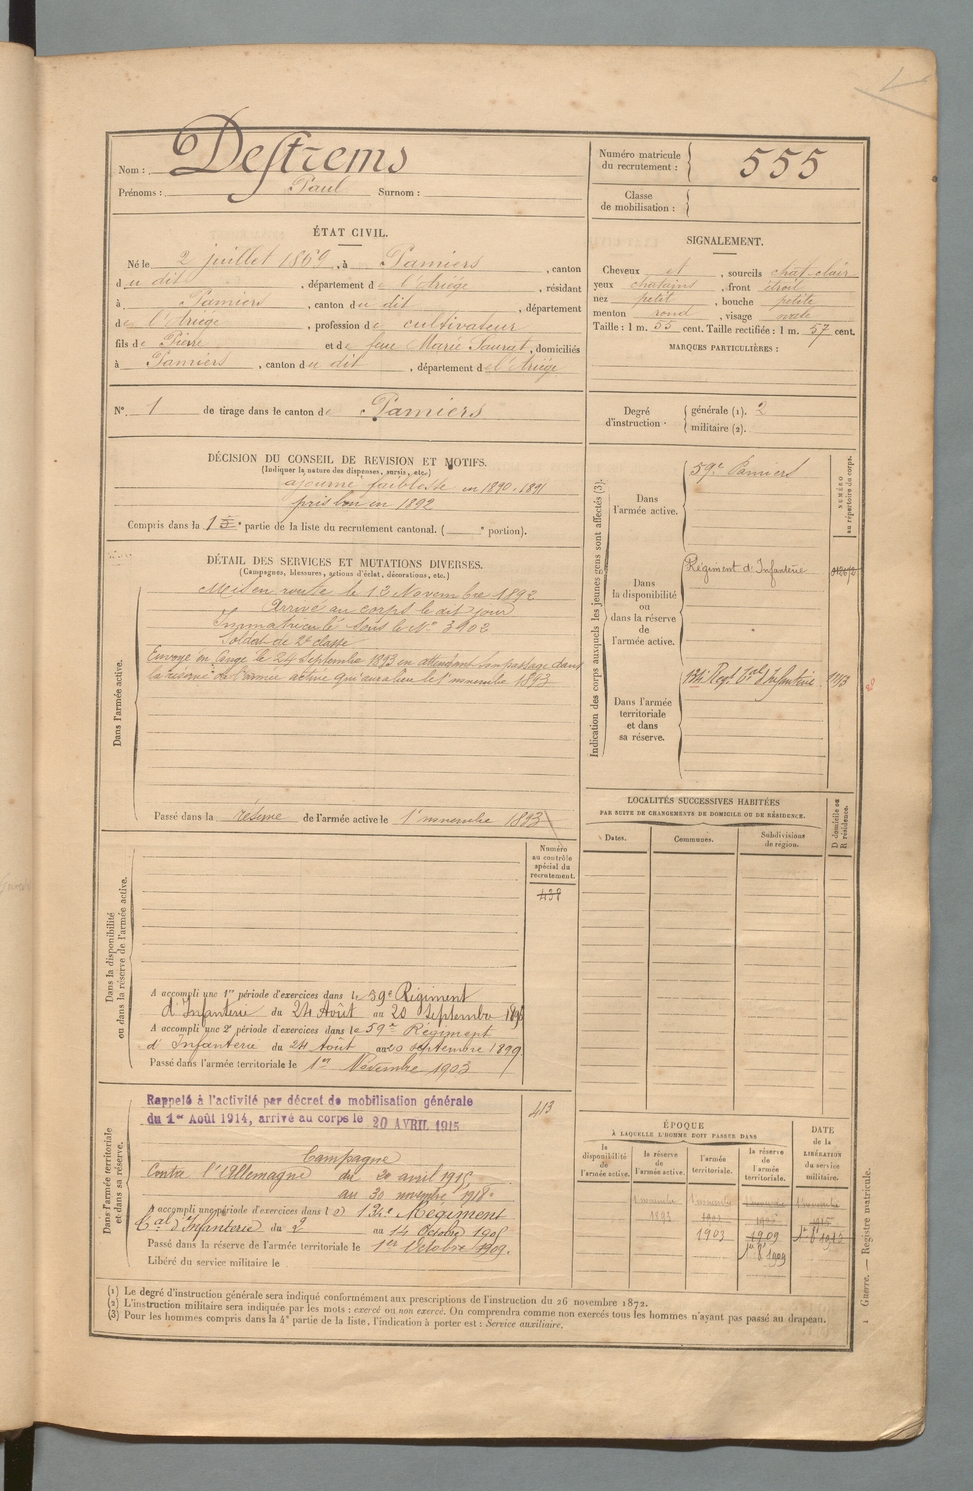 Nom : Destrems
Prénoms : Paul Surnom :
Numéro matricule du recrutement : 555
Classe de mobilisation :
ÉTAT CIVIL.
Né le 2 juillet 1869, à Pamiers, canton
du dit, département de l'Ariége, résidant
à Pamiers, canton du dit, département
de l'Ariége, profession de cultivateur
fils de Pierre et de feue Marie Saurat, domiciliés
à Pamiers, canton du dit, département de l'Ariége
SIGNALEMENT.
Cheveux et, sourcils chat-clair
yeux chatains, front étroit
nez petit, bouche petite
menton rond, visage ovale
Taille : 1 m. 55 cent. Taille rectifiée : 1 m. 57 cent.
MARQUES PARTICULIÈRES :
N° 1 de tirage dans le canton de Pamiers
Degré d'instruction : générale (1). 2
militaire (2).
DÉCISION DU CONSEIL DE REVISION ET MOTIFS.
(Indiquer la nature des dispenses, sursis, etc.)
ajourné faiblesse en 1890, 1891
pris bon en 1892
Compris dans la 1 partie de la liste du recrutement cantonal. ( portion).
DÉTAIL DES SERVICES ET MUTATIONS DIVERSES.
(Campagnes, blessures, actions d'éclat, décorations, etc.)
Dans l'armée active.
Mis en route le 12 Novembre 1892
Arrivé au corps le dit jour
Immatriculé sous le N° 3902
Soldat de 2e classe
Envoyé en congé le 24 Septembre 1893 en attendant son passage dans
la réserve de l'armée active qui aura lieu le 1er novembre 1893
Passé dans la réserve de l'armée active le 1er novembre 1893
Indication des corps auxquels les jeunes gens sont affectés (3).
NUMÉRO au répertoire du corps.
Dans l'armée active.
59e Pamiers
Dans la disponibilité ou dans la réserve de l'armée active.
Régiment d'Infanterie
Dans l'armée territoriale et dans sa réserve.
134e Regt Tal d'Infanterie
LOCALITÉS SUCCESSIVES HABITÉES
PAR SUITE DE CHANGEMENTS DE DOMICILE OU DE RÉSIDENCE.
D domicile ou R résidence.
Dates. Communes. Subdivisions de région.
Dans la disponibilité ou dans la réserve de l'armée active.
Numéro au contrôle spécial du recrutement.
438
A accompli une 1re période d'exercices dans le 59e Régiment
d'Infanterie du 24 Août au 20 Septembre
A accompli une 2e période d'exercices dans le 59e Régiment
d'Infanterie du 24 Août au 20 Septembre 1899
Passé dans l'armée territoriale le 1er Novembre 1903
Dans l'armée territoriale et dans sa réserve.
413
Rappelé à l'activité par décret de mobilisation générale
du 1er Août 1914, arrivé au corps le 20 AVRIL 1915
Campagne
Contre l'Allemagne du 20 avril 1915
au 30 novembre 1918
A accompli une période d'exercices dans le 134e Régiment
Tal d'Infanterie du 2 au 14 Octobre 1905
Passé dans la réserve de l'armée territoriale le 1er Octobre 1909.
Libéré du service militaire le
ÉPOQUE
À LAQUELLE L'HOMME DOIT PASSER DANS
DATE de la LIBÉRATION du service militaire.
la disponibilité de l'armée active. la réserve de l'armée active. l'armée territoriale. la réserve de l'armée territoriale.
1 novembre 1 novembre 1 novembre 1 novembre
1893
1903 1909
1er 8bre 1909
(1) Le degré d'instruction générale sera indiqué conformément aux prescriptions de l'instruction du 26 novembre 1872.
(2) L'instruction militaire sera indiquée par les mots : exercé ou non exercé. On comprendra comme non exercés tous les hommes n'ayant pas passé au drapeau.
(3) Pour les hommes compris dans la 4e partie de la liste, l'indication à porter est : Service auxiliaire.
Guerre. — Registre matricule.